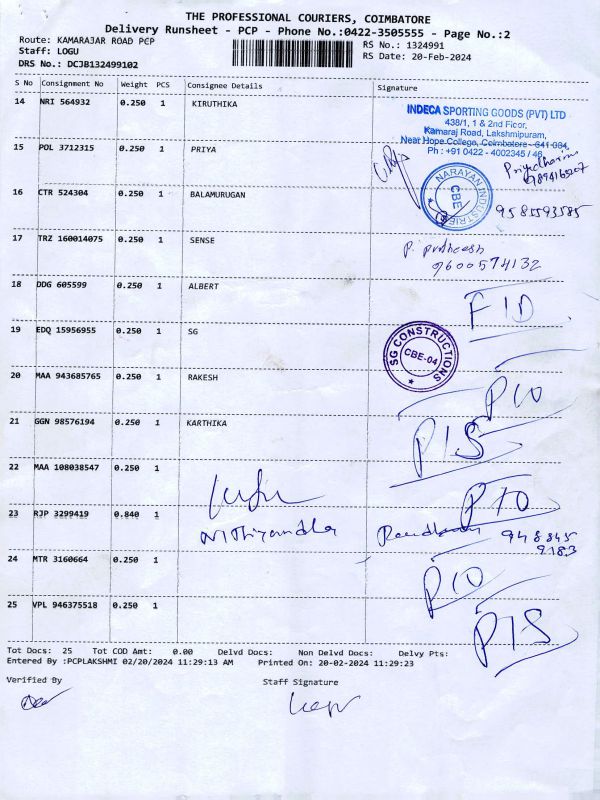 THE PROFESSIONAL COURIERS, COIMBATORE
Delivery Runsheet - PCP - Phone No.:0422-3505555 - Page No.:2
Route: KAMARAJAR ROAD PCP
RS No.: 1324991
Staff: LOGU
RS Date: 20-Feb-2024
DRS No.: DCJB132499102
S No Consignment No Weight PCS Consignee Details Signature
14 NRI 564932 0.250 1 KIRUTHIKA
INDECA SPORTING GOODS (PVT) LTD
438/1, 1 & 2nd Floor,
Kamaraj Road, Lakshmipuram,
Near Hope College, Coimbatore - 641 004,
Ph : +91 0422 - 4002345 / 46
15 POL 3712315 0.250 1 PRIYA
16 CTR 524304 0.250 1 BALAMURUGAN
NARAYAN INDUSTRIES
CBE
9585593585
17 TRZ 160014075 0.250 1 SENSE
9600574132
18 DDG 605599 0.250 1 ALBERT
FID
19 EDQ 15956955 0.250 1 SG
SG CONSTRUCTIONS
CBE-04
20 MAA 943685765 0.250 1 RAKESH
P10
21 GGN 98576194 0.250 1 KARTHIKA
P1S
22 MAA 108038547 0.250 1
P10
23 RJP 3299419 0.840 1
948845
9183
24 MTR 3160664 0.250 1
P10
25 VPL 946375518 0.250 1
P1S
Tot Docs: 25 Tot COD Amt: 0.00 Delvd Docs: Non Delvd Docs: Delvy Pts:
Entered By :PCPLAKSHMI 02/20/2024 11:29:13 AM Printed On: 20-02-2024 11:29:23
Verified By Staff Signature